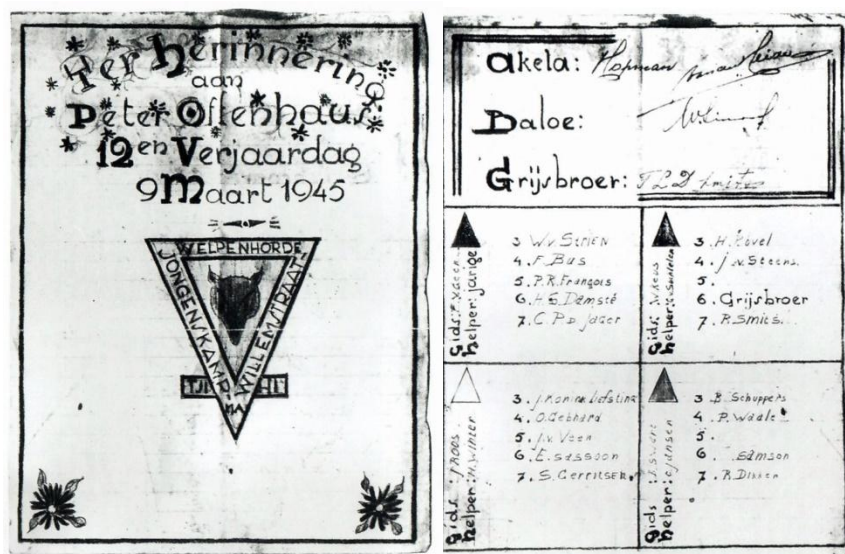 Ter herinnering
aan
Peter Offenhaus
12en Verjaardag
9 Maart 1945
WELPENHORDE
JONGENSKAMP
WILLEMSTRAAT
TJIMAHI
Akela: Hopman
Baloe:
Grijsbroer: T L D Smits
Gids:
helper: jarige
3 W.v. STRIEN
4. F. Bus
5. P.R. François
6. H.S. Damsté
7. C. P.D. Jager
Gids:
helper:
3. H. Kövel
4. J.v. Steens
5.
6. Grijsbroer
7. R Smies
Gids: J ROOS
helper: M. Winter
3. J. Konin Liefsting
4. O. Gebhard
5. J.v. Veen
6. E. sassoon
7. S. Gerritsen
Gids:
helper: Jansen
3 B. Schuppers
4 P. Waale
5.
6 samson
7. R. Dikken